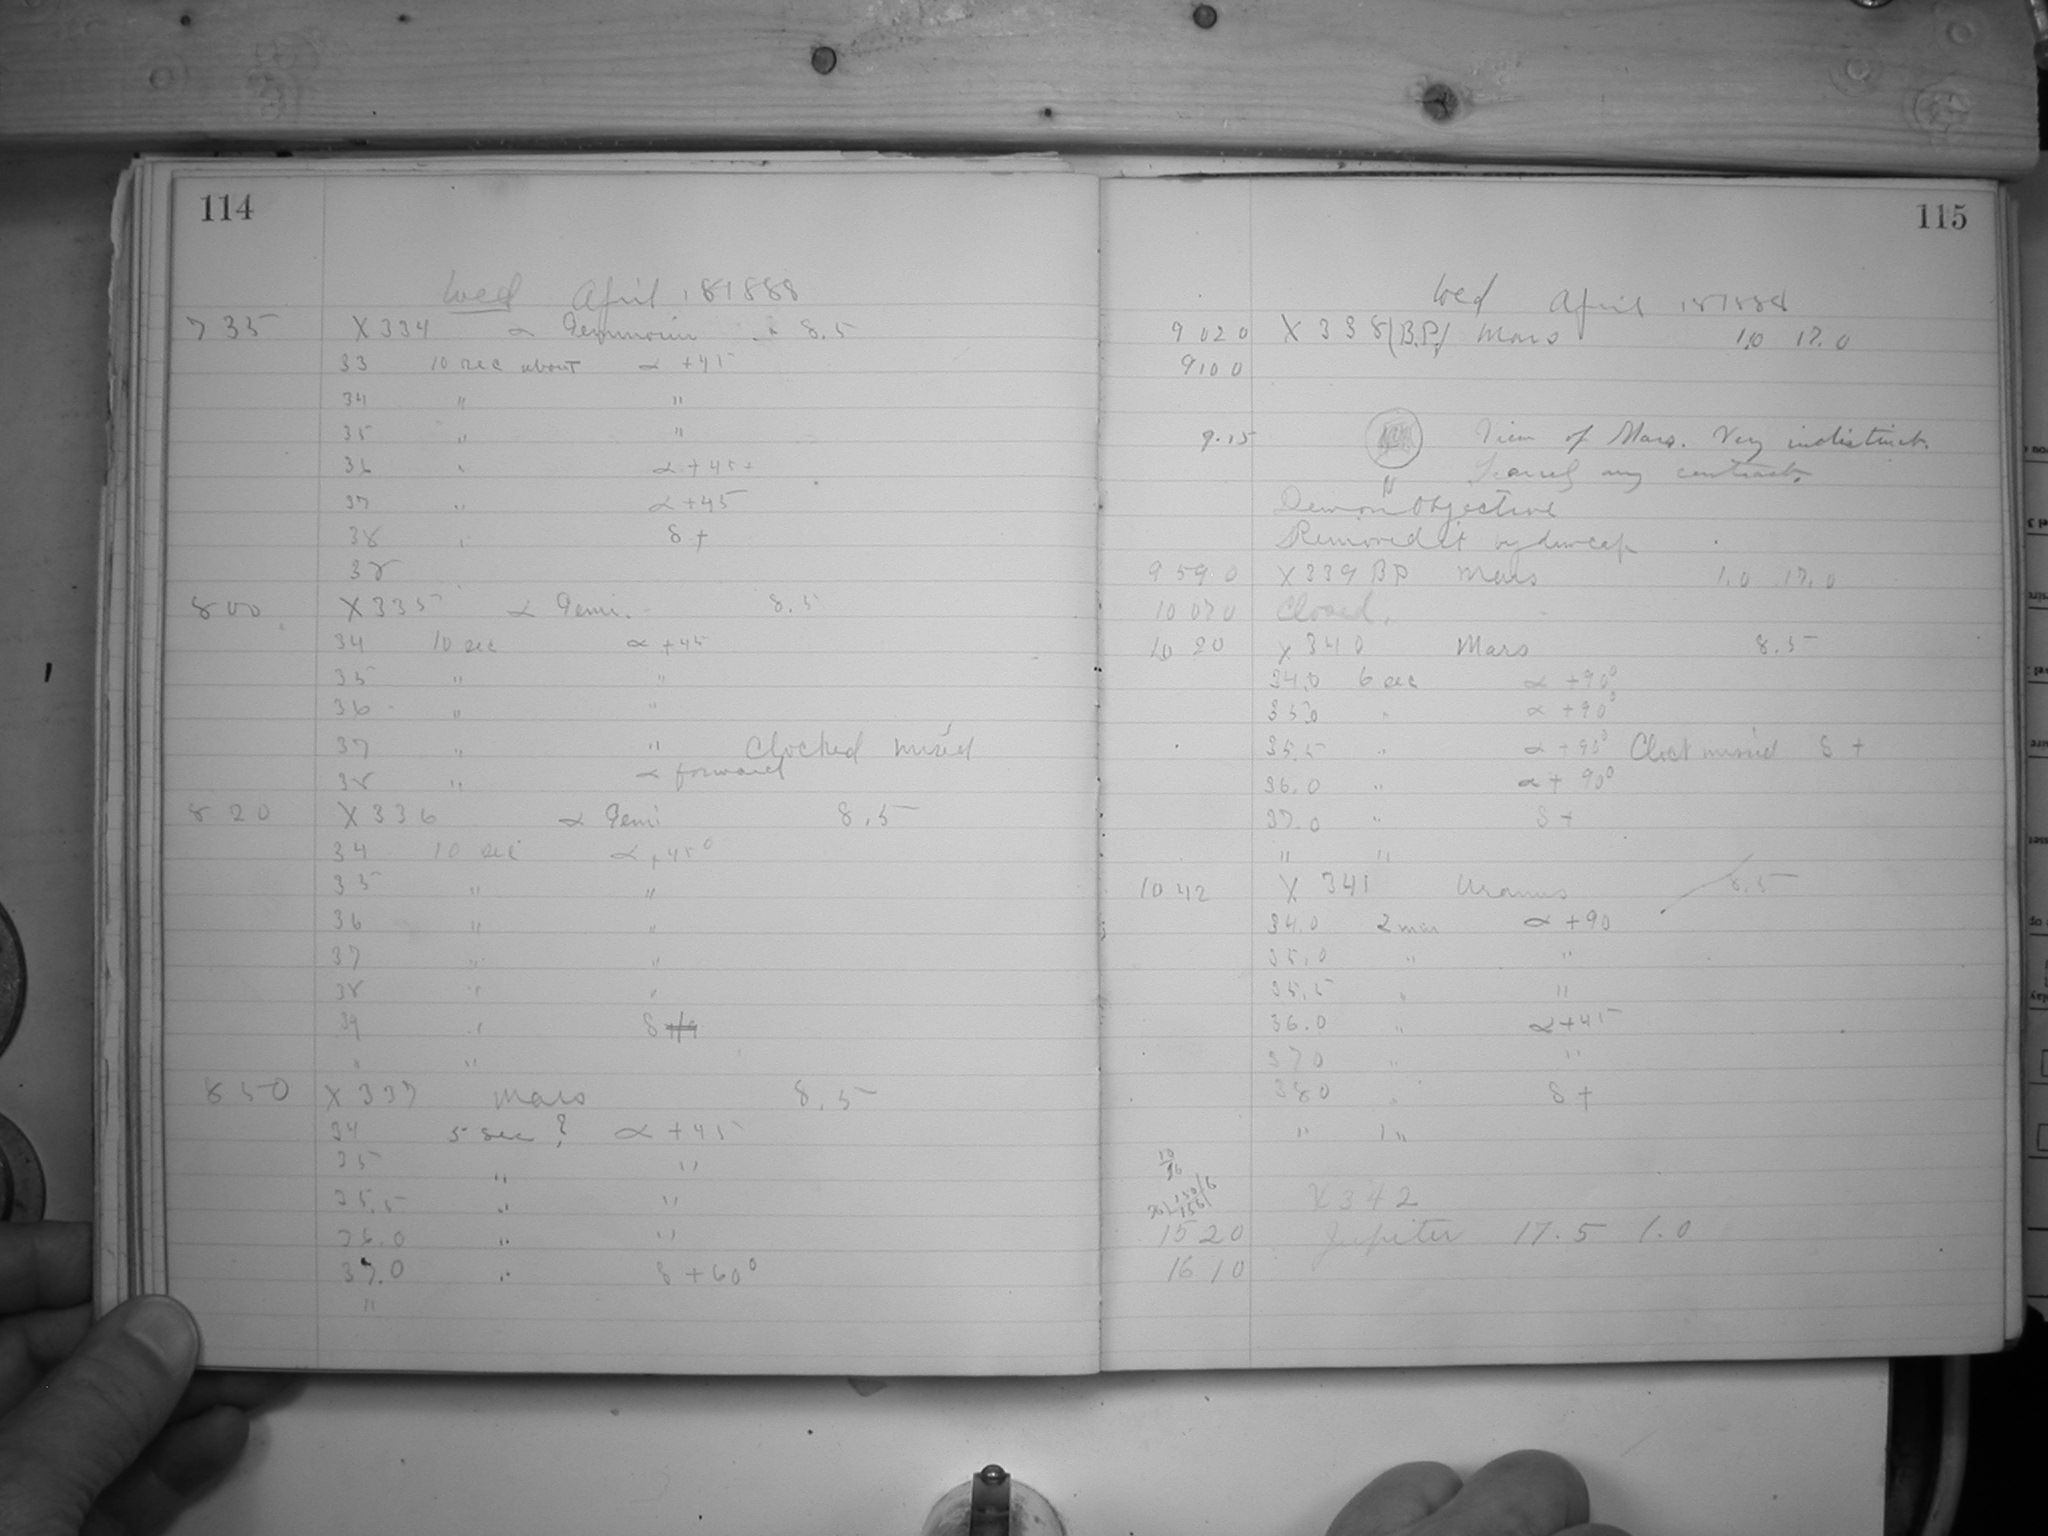 114
Wed April 18 1888
7 35 X 334 α Geminorum 8.5
33 10 sec about α +45
34 " "
35 " "
36 " α +45
37 " α +45
38 " δ +
38
8 00 X 335 α Gemi. 8.5
34 10 sec α +45
35 " "
36 " "
37 " " Clocked missed
38 " α forward
8 20 X 336 α Gemi 8.5
34 10 sec α +45°
35 " "
36 " "
37 " "
38 " "
39 " δ
" "
8 50 X 337 Mars 8.5
34 5 sec ? α +45
35 " "
35.5 " "
36.0 " "
37.0 " δ +60°
"
115
Wed April 18 1888
9 02 0 X 338 (B.P.) Mars 1.0 17.0
9 10 0
9.15 View of Mars. Very indistinct.
Scarcely any contrast.
Objective
Removed it
9 59 0 X 339 BP Mars 1.0 17.0
10 07 0 Closed.
10 20 X 340 Mars 8.5
34.0 6 sec α +90°
35.0 " α +90°
35.5 " α +90° Clock missed δ +
36.0 " α + 90°
37.0 " δ +
" "
10 42 X 341 Uranus 8.5
34.0 2 min α +90
35.0 " "
35.5 " "
36.0 " α +45
37 0 " "
38 0 " δ +
" 1 "
X 342
15 20 Jupiter 17.5 1.0
16 10